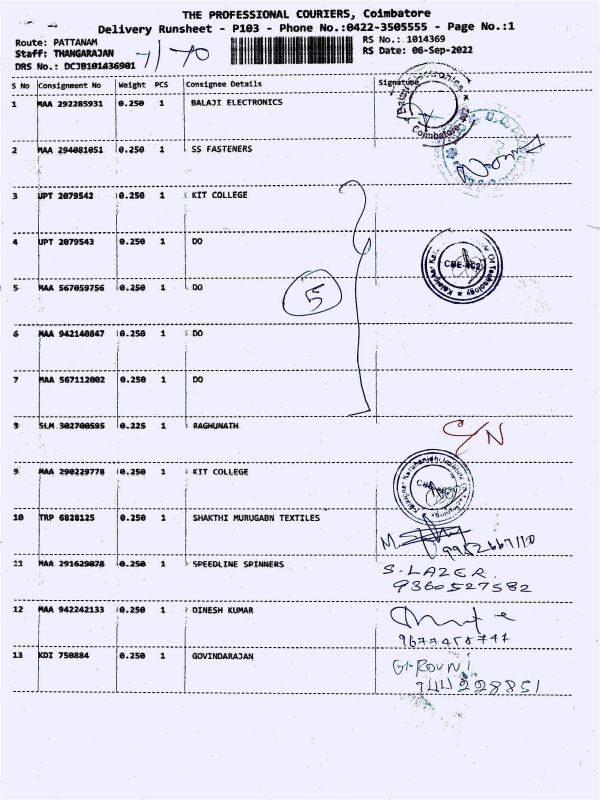 THE PROFESSIONAL COURIERS, Coimbatore
Delivery Runsheet - P103 - Phone No.:0422-3505555 - Page No.:1
Route: PATTANAM
RS No.: 1014369
Staff: THANGARAJAN
RS Date: 06-Sep-2022
DRS No.: DCJB101436901
S No Consignment No Weight PCS Consignee Details Signature
1 MAA 292285931 0.250 1 BALAJI ELECTRONICS
2 MAA 294081051 0.250 1 SS FASTENERS
3 UPT 2079542 0.250 1 KIT COLLEGE
4 UPT 2079543 0.250 1 DO
5 MAA 567059756 0.250 1 DO
5
6 MAA 942140847 0.250 1 DO
7 MAA 567112002 0.250 1 DO
8 SLM 302700595 0.225 1 RAGHUNATH
C/N
9 MAA 290229778 0.250 1 KIT COLLEGE
10 TRP 6828125 0.250 1 SHAKTHI MURUGABN TEXTILES
11 MAA 291629078 0.250 1 SPEEDLINE SPINNERS
S. LAZER.
9360527582
12 MAA 942242133 0.250 1 DINESH KUMAR
13 KDI 750884 0.250 1 GOVINDARAJAN
944228851